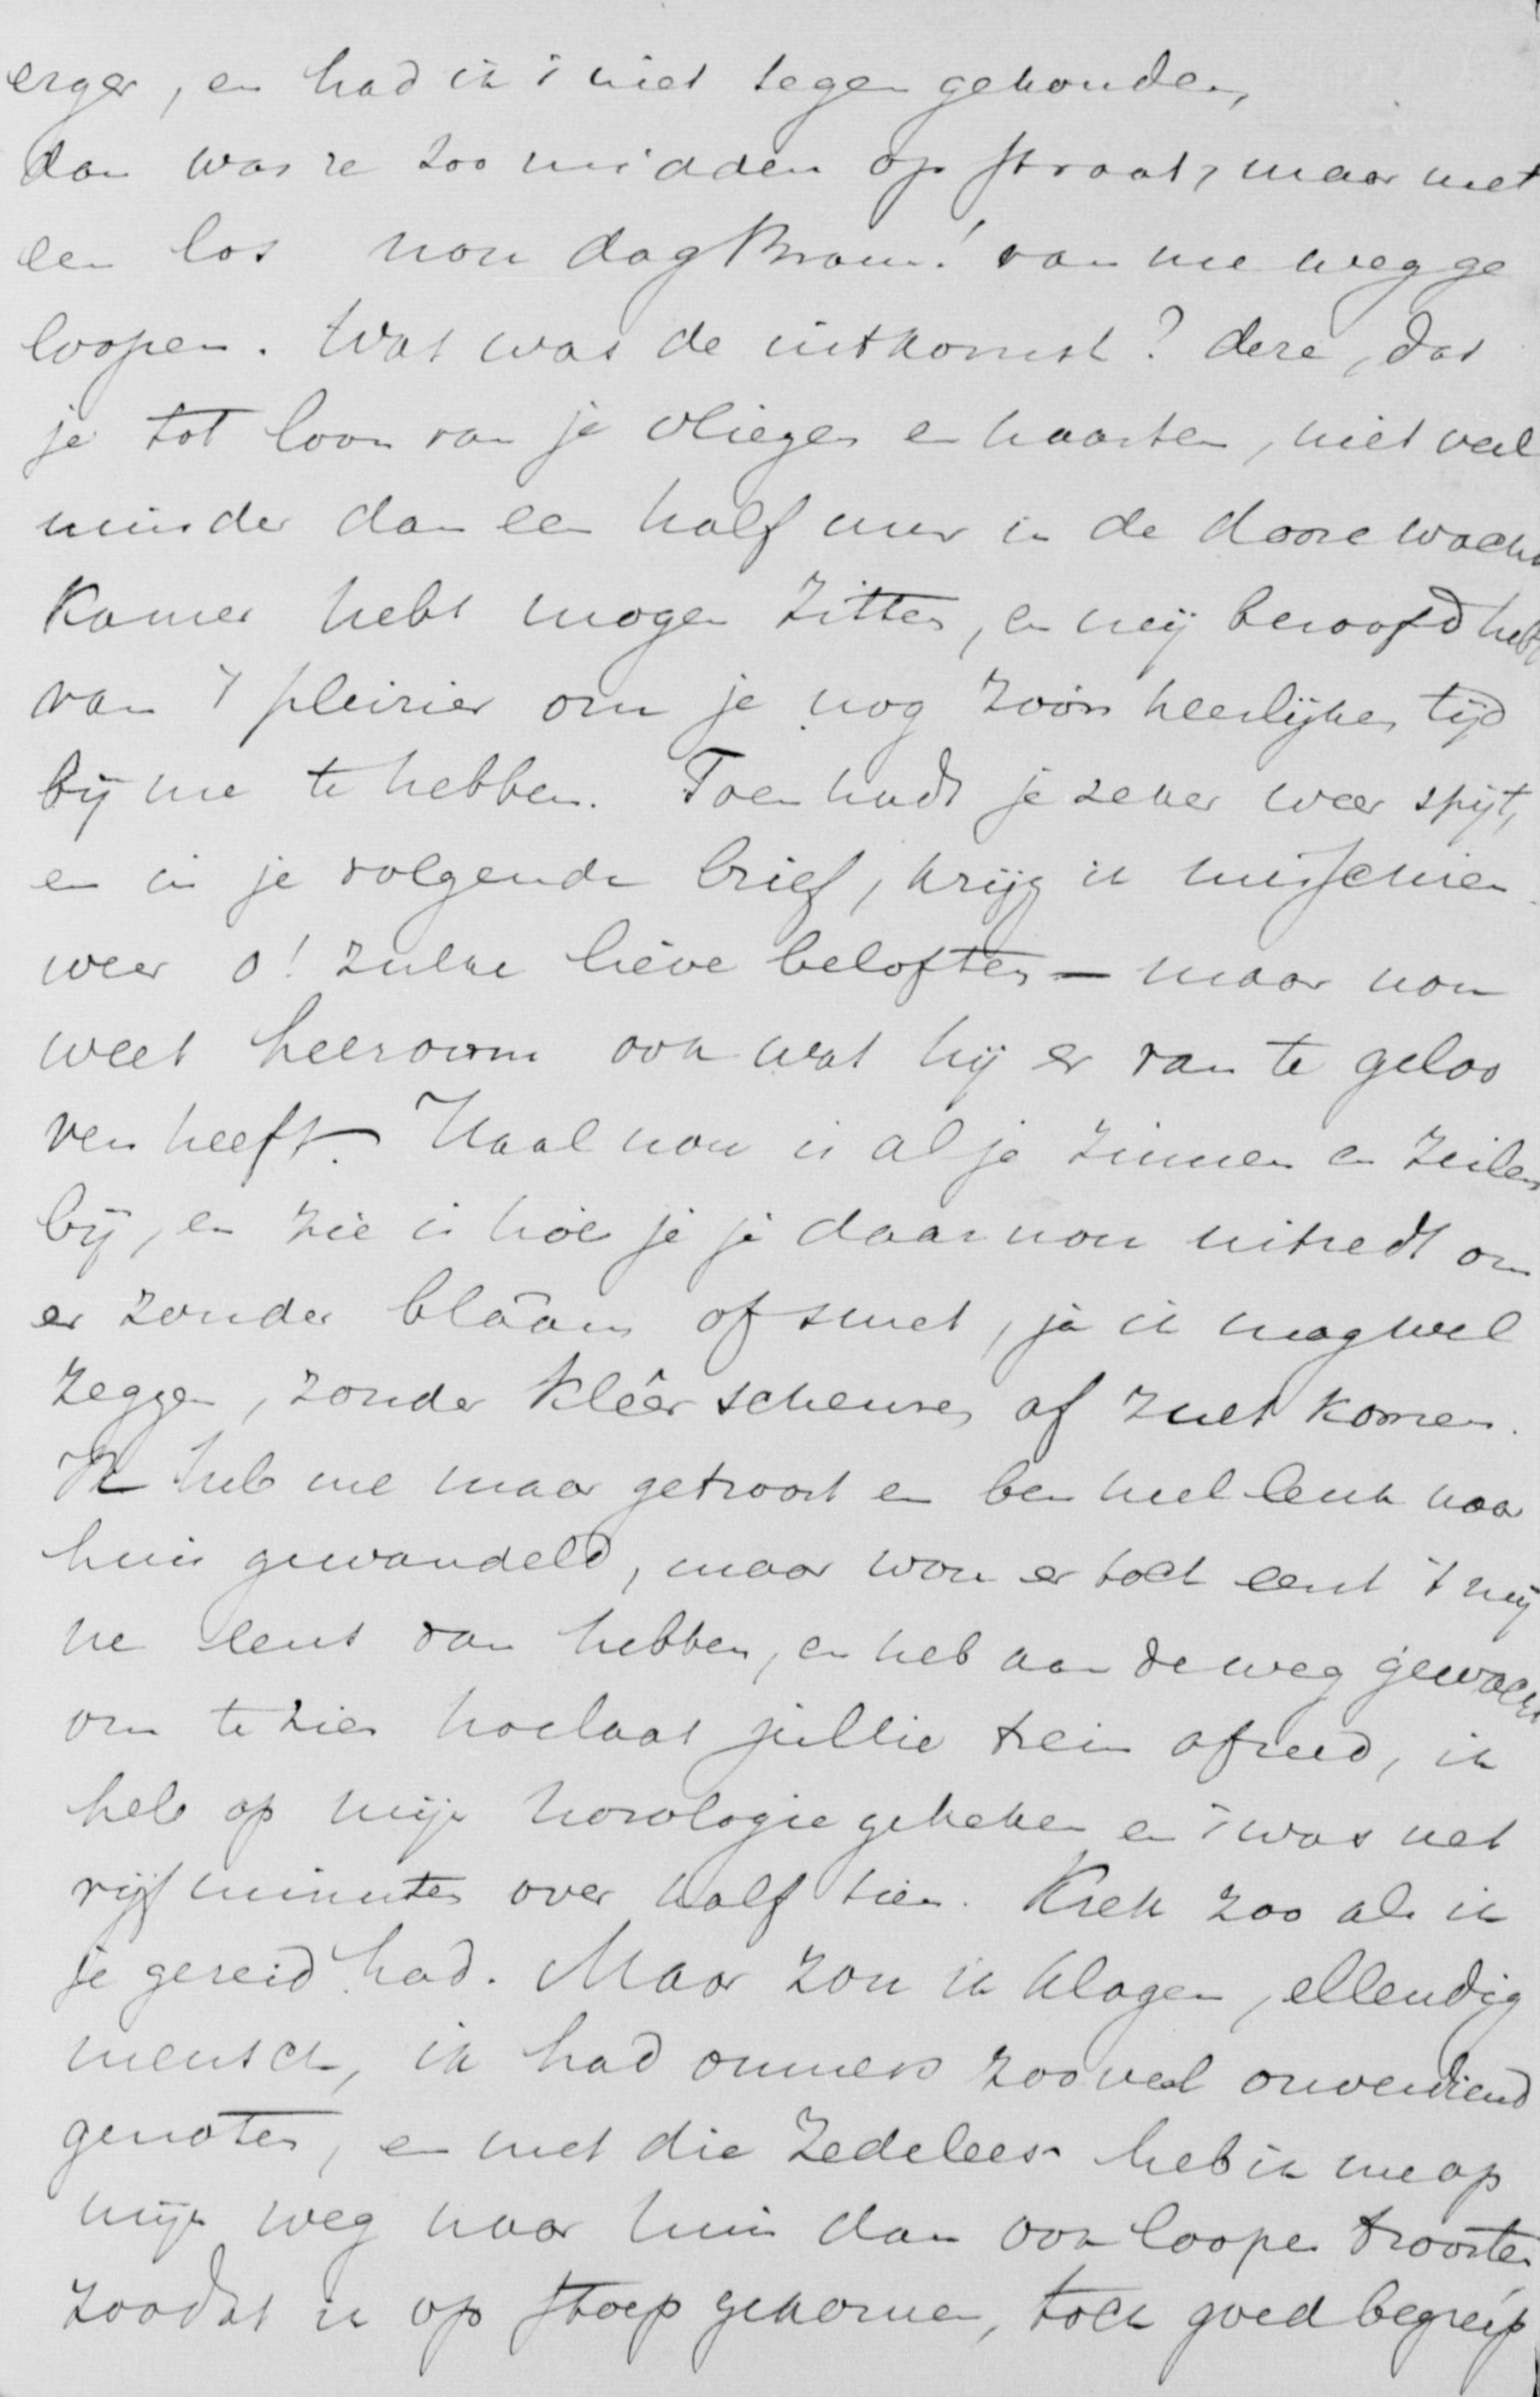 erger, en had ik 't niet tegen gehouden,
dan was ze zoo midden op straat, maar met
een los nou dag Bram! van me wegge
loopen. Wat was de uitkomst? deze, dat
je tot loon van je vliegen en haasten, niet veel
minder dan een half uur in de dooie wacht
kamer hebt mogen zitten, en mij beroofd hebt
van 't pleizier om je nog zóó'n heerlijken tijd
bij me te hebben. Toen hadt je zeker weer spijt,
en in je volgende brief, krijg ik misschien
weer o! zulke lieve beloften — maar nou
weet heeroom ook wat hij er van te geloo
ven heeft. Haal nou is al je zinnen en zeilen
bij, en zie is hoe je je daar nou uitredt om
er zonder blaâm of smet, ja ik mag wel
zeggen, zonder kleêrscheuren af zult komen.
Ik heb me maar getroost en ben heel leuk naar
huis gewandeld, maar wou er toch eerst 't mij
ne eens van hebben, en heb aan de weg gewacht
om te zien hoelaat jullie trein afreed, ik
heb op mijn horologie gekeken en 't was net
vijf minuten over half tien. Krek zoo als ik
je gezeid had. Maar zou ik klagen, ellendig
mensch, ik had ommers zooveel onverdiend
genoten, en met die zedelees heb ik me op
mijn weg naar huis dan ook loopen troosten
zoodat ik op stoep gekomen, toch goed begreep